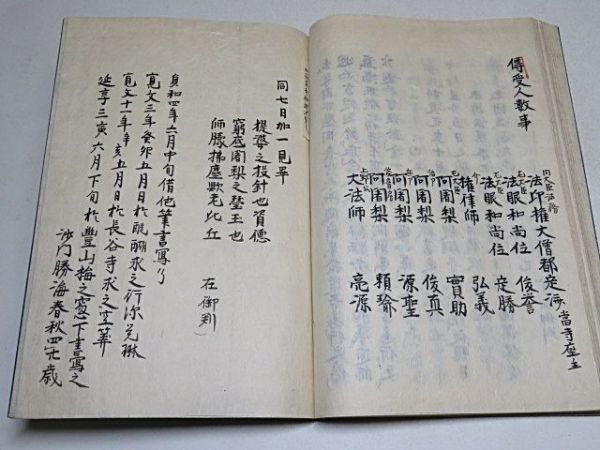 傳受人數事
法印權大僧都定海 當寺座主
法眼和尚位 俊誉
法眼和尚位 定勝
權律師 弘義
權律師 實助
阿闍梨 俊真
阿闍梨 源聖
阿闍梨 頼瑜
大法師 亮源
同七日加一見畢
提婆之投針也質德
窮底闍梨之瑩玉也
師勝拂塵數毛比丘
在御判
貞和四年六月中旬借他筆書寫了
寛文三年癸卯五月日於醍醐
寛文十一年辛亥五月日於長谷寺求之
延享三寅六月下旬於豊山梅之窓下書寫之
沙門勝海春秋四十歳